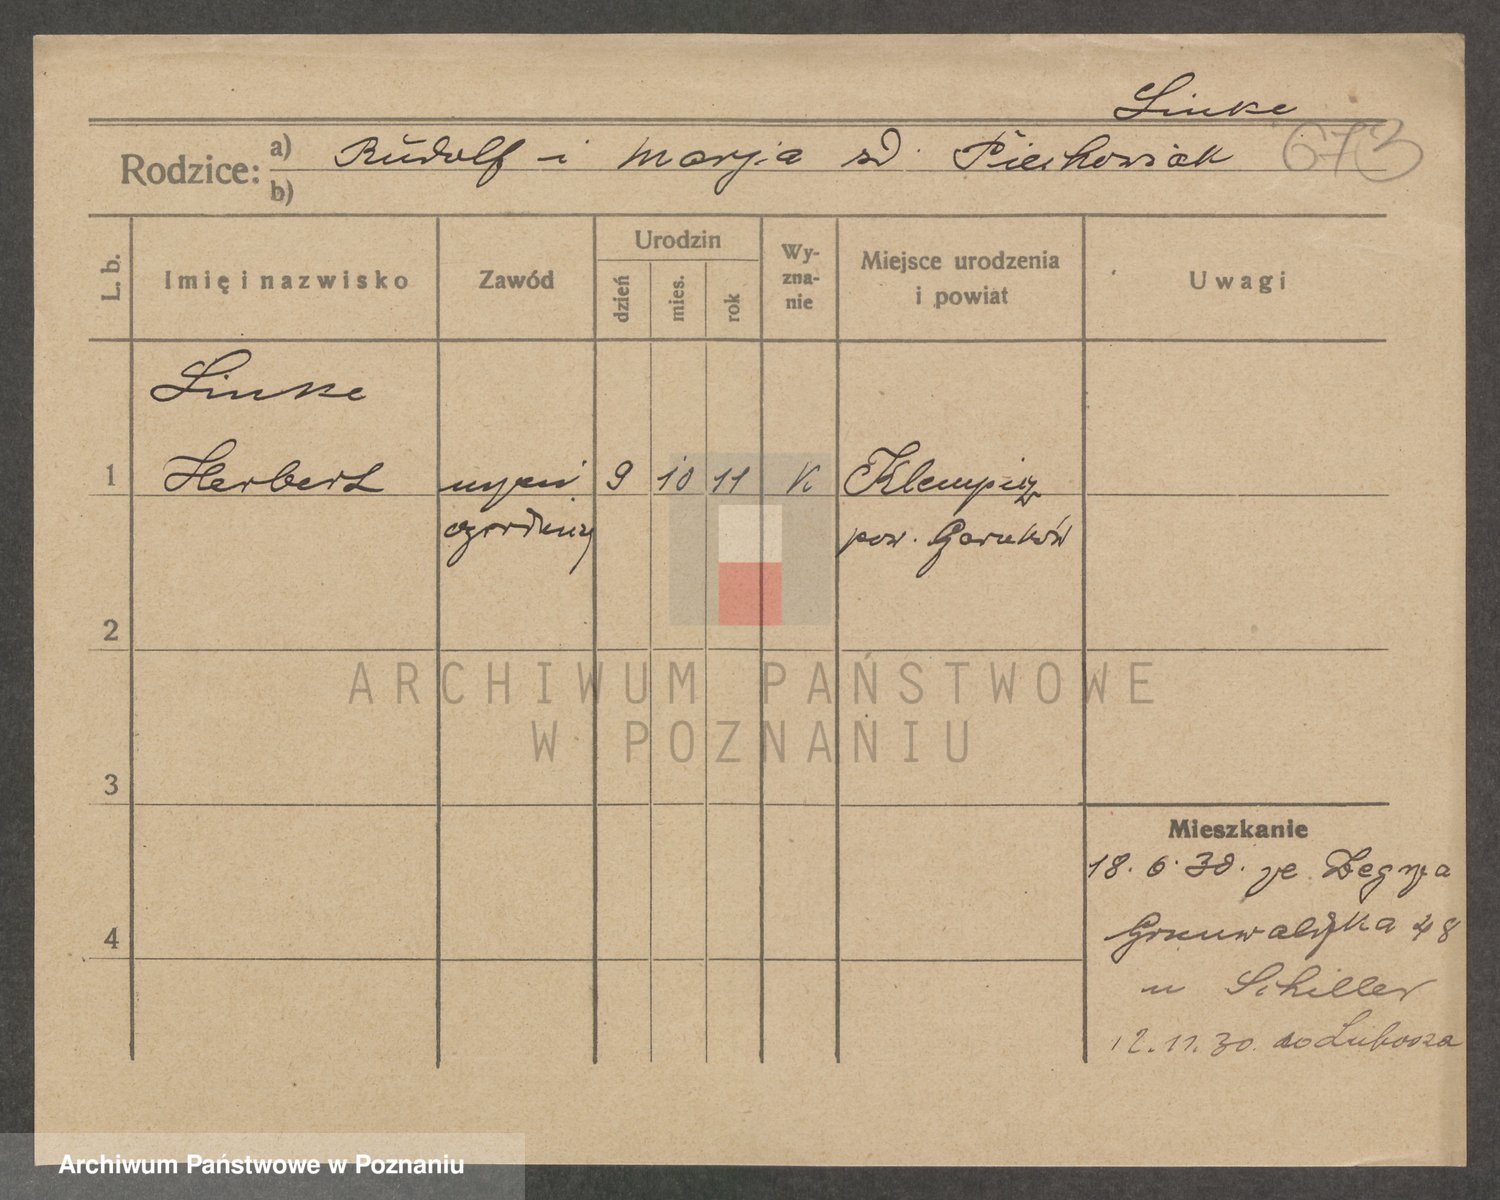 Linke
Rodzice: a) Rudolf i Marja zd. Piechowiak 673
b)
L. b.
Imię i nazwisko
Zawód
Urodzin
dzień
mies.
rok
Wy-
zna-
nie
Miejsce urodzenia
i powiat
Uwagi
Linke
1 Herbert uczeń 9 10 11 K Klempicz
ogrodniczy pow. Czarnków
2
ARCHIWUM PAŃSTWOWE
W POZNANIU
3
Mieszkanie
18. 6. 30. ze Żegrza
4 Grunwaldzka 48
u Schiller
12.11.30. do Lubosza
Archiwum Państwowe w Poznaniu